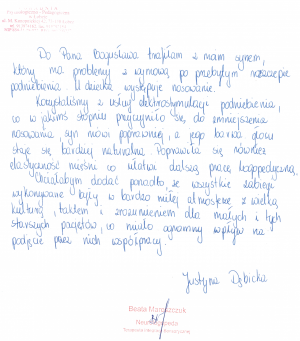 Do Pana Bogusława trafiłam z mam synem,
który ma problemy z wymową po przebytym rozszczepie
podniebienia. U dziecka występuje nosowanie.
Korzystaliśmy z usług elektrostymulacji podniebienia,
co w jakimś stopniu przyczyniło się, do zmniejszenia
nosowania, syn mówi poprawniej, a jego barwa głosu
staje się bardziej naturalna. Poprawiła się również
elastyczność mięśni co ułatwia dalszą pracę logopedyczną.
Chciałabym dodać ponadto, że wszystkie zabiegi
wykonywane były w bardzo miłej atmosferze z wielką
kulturą, taktem i zrozumieniem dla małych i tych
starszych pacjentów, co miało ogromny wpływ na
podjęcie przez nich współpracy.
Justyna Dębicka
Beata